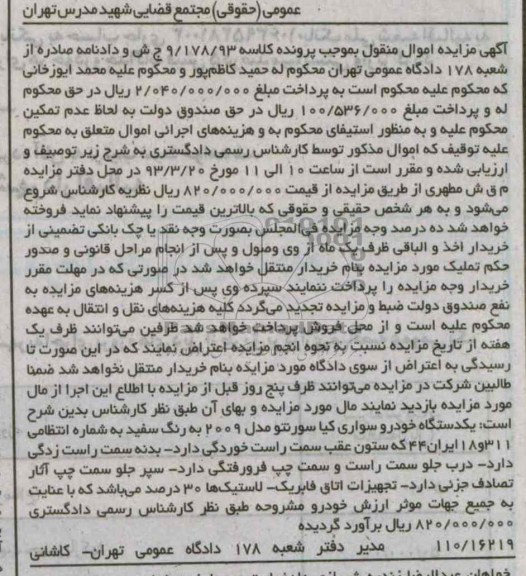 عمومی (حقوقی) مجتمع قضایی شهید مدرس تهران
آگهی مزایده اموال منقول بموجب پرونده کلاسه ۹/۱۷۸/۹۳ ج ش و دادنامه صادره از
شعبه ۱۷۸ دادگاه عمومی تهران محکوم له حمید کاظم‌پور و محکوم علیه محمد ایوزخانی
که محکوم علیه محکوم است به پرداخت مبلغ ۲/۰۴۰/۰۰۰/۰۰۰ ریال در حق محکوم
له و پرداخت مبلغ ۱۰۰/۵۳۶/۰۰۰ ریال در حق صندوق دولت به لحاظ عدم تمکین
محکوم علیه و به منظور استیفای محکوم به و هزینه‌های اجرائی اموال متعلق به محکوم
علیه توقیف که اموال مذکور توسط کارشناس رسمی دادگستری به شرح زیر توصیف و
ارزیابی شده و مقرر است از ساعت ۱۰ الی ۱۱ مورخ ۹۳/۳/۲۰ در محل دفتر مزایده
م ق ش مطهری از طریق مزایده از قیمت ۸۲۰/۰۰۰/۰۰۰ ریال نظریه کارشناس شروع
می‌شود و به هر شخص حقیقی و حقوقی که بالاترین قیمت را پیشنهاد نماید فروخته
خواهد شد ده درصد وجه مزایده فی‌المجلس بصورت وجه نقد یا چک بانکی تضمینی از
خریدار اخذ و الباقی ظرف یک ماه از وی وصول و پس از انجام مراحل قانونی و صدور
حکم تملیک مورد مزایده بنام خریدار منتقل خواهد شد در صورتی که در مهلت مقرر
خریدار وجه مزایده را پرداخت ننمایند سپرده وی پس از کسر هزینه‌های مزایده به
نفع صندوق دولت ضبط و مزایده تجدید می‌گردد کلیه هزینه‌های نقل و انتقال به عهده
محکوم علیه است و از محل فروش پرداخت خواهد شد طرفین می‌توانند ظرف یک
هفته از تاریخ مزایده نسبت به نحوه انجم مزایده اعتراض نمایند که در این صورت تا
رسیدگی به اعتراض از سوی دادگاه مورد مزایده بنام خریدار منتقل نخواهد شد ضمنا
طالبین شرکت در مزایده می‌توانند ظرف پنج روز قبل از مزایده با اطلاع این اجرا از مال
مورد مزایده بازدید نمایند مال مورد مزایده و بهای آن طبق نظر کارشناس بدین شرح
است: یکدستگاه خودرو سواری کیا سورنتو مدل ۲۰۰۹ به رنگ سفید به شماره انتظامی
۳۱۱و۱۸ ایران۴۴ که ستون عقب سمت راست خوردگی دارد– بدنه سمت راست زدگی
دارد– درب جلو سمت راست و سمت چپ فرورفتگی دارد– سپر جلو سمت چپ آثار
تصادف جزئی دارد– تجهیزات اتاق فابریک– لاستیک‌ها ۳۰ درصد می‌باشد که با عنایت
به جمیع جهات موثر ارزش خودرو مشروحه طبق نظر کارشناس رسمی دادگستری
۸۲۰/۰۰۰/۰۰۰ ریال برآورد گردیده
۱۱۰/۱۶۲۱۹ مدیر دفتر شعبه ۱۷۸ دادگاه عمومی تهران– کاشانی